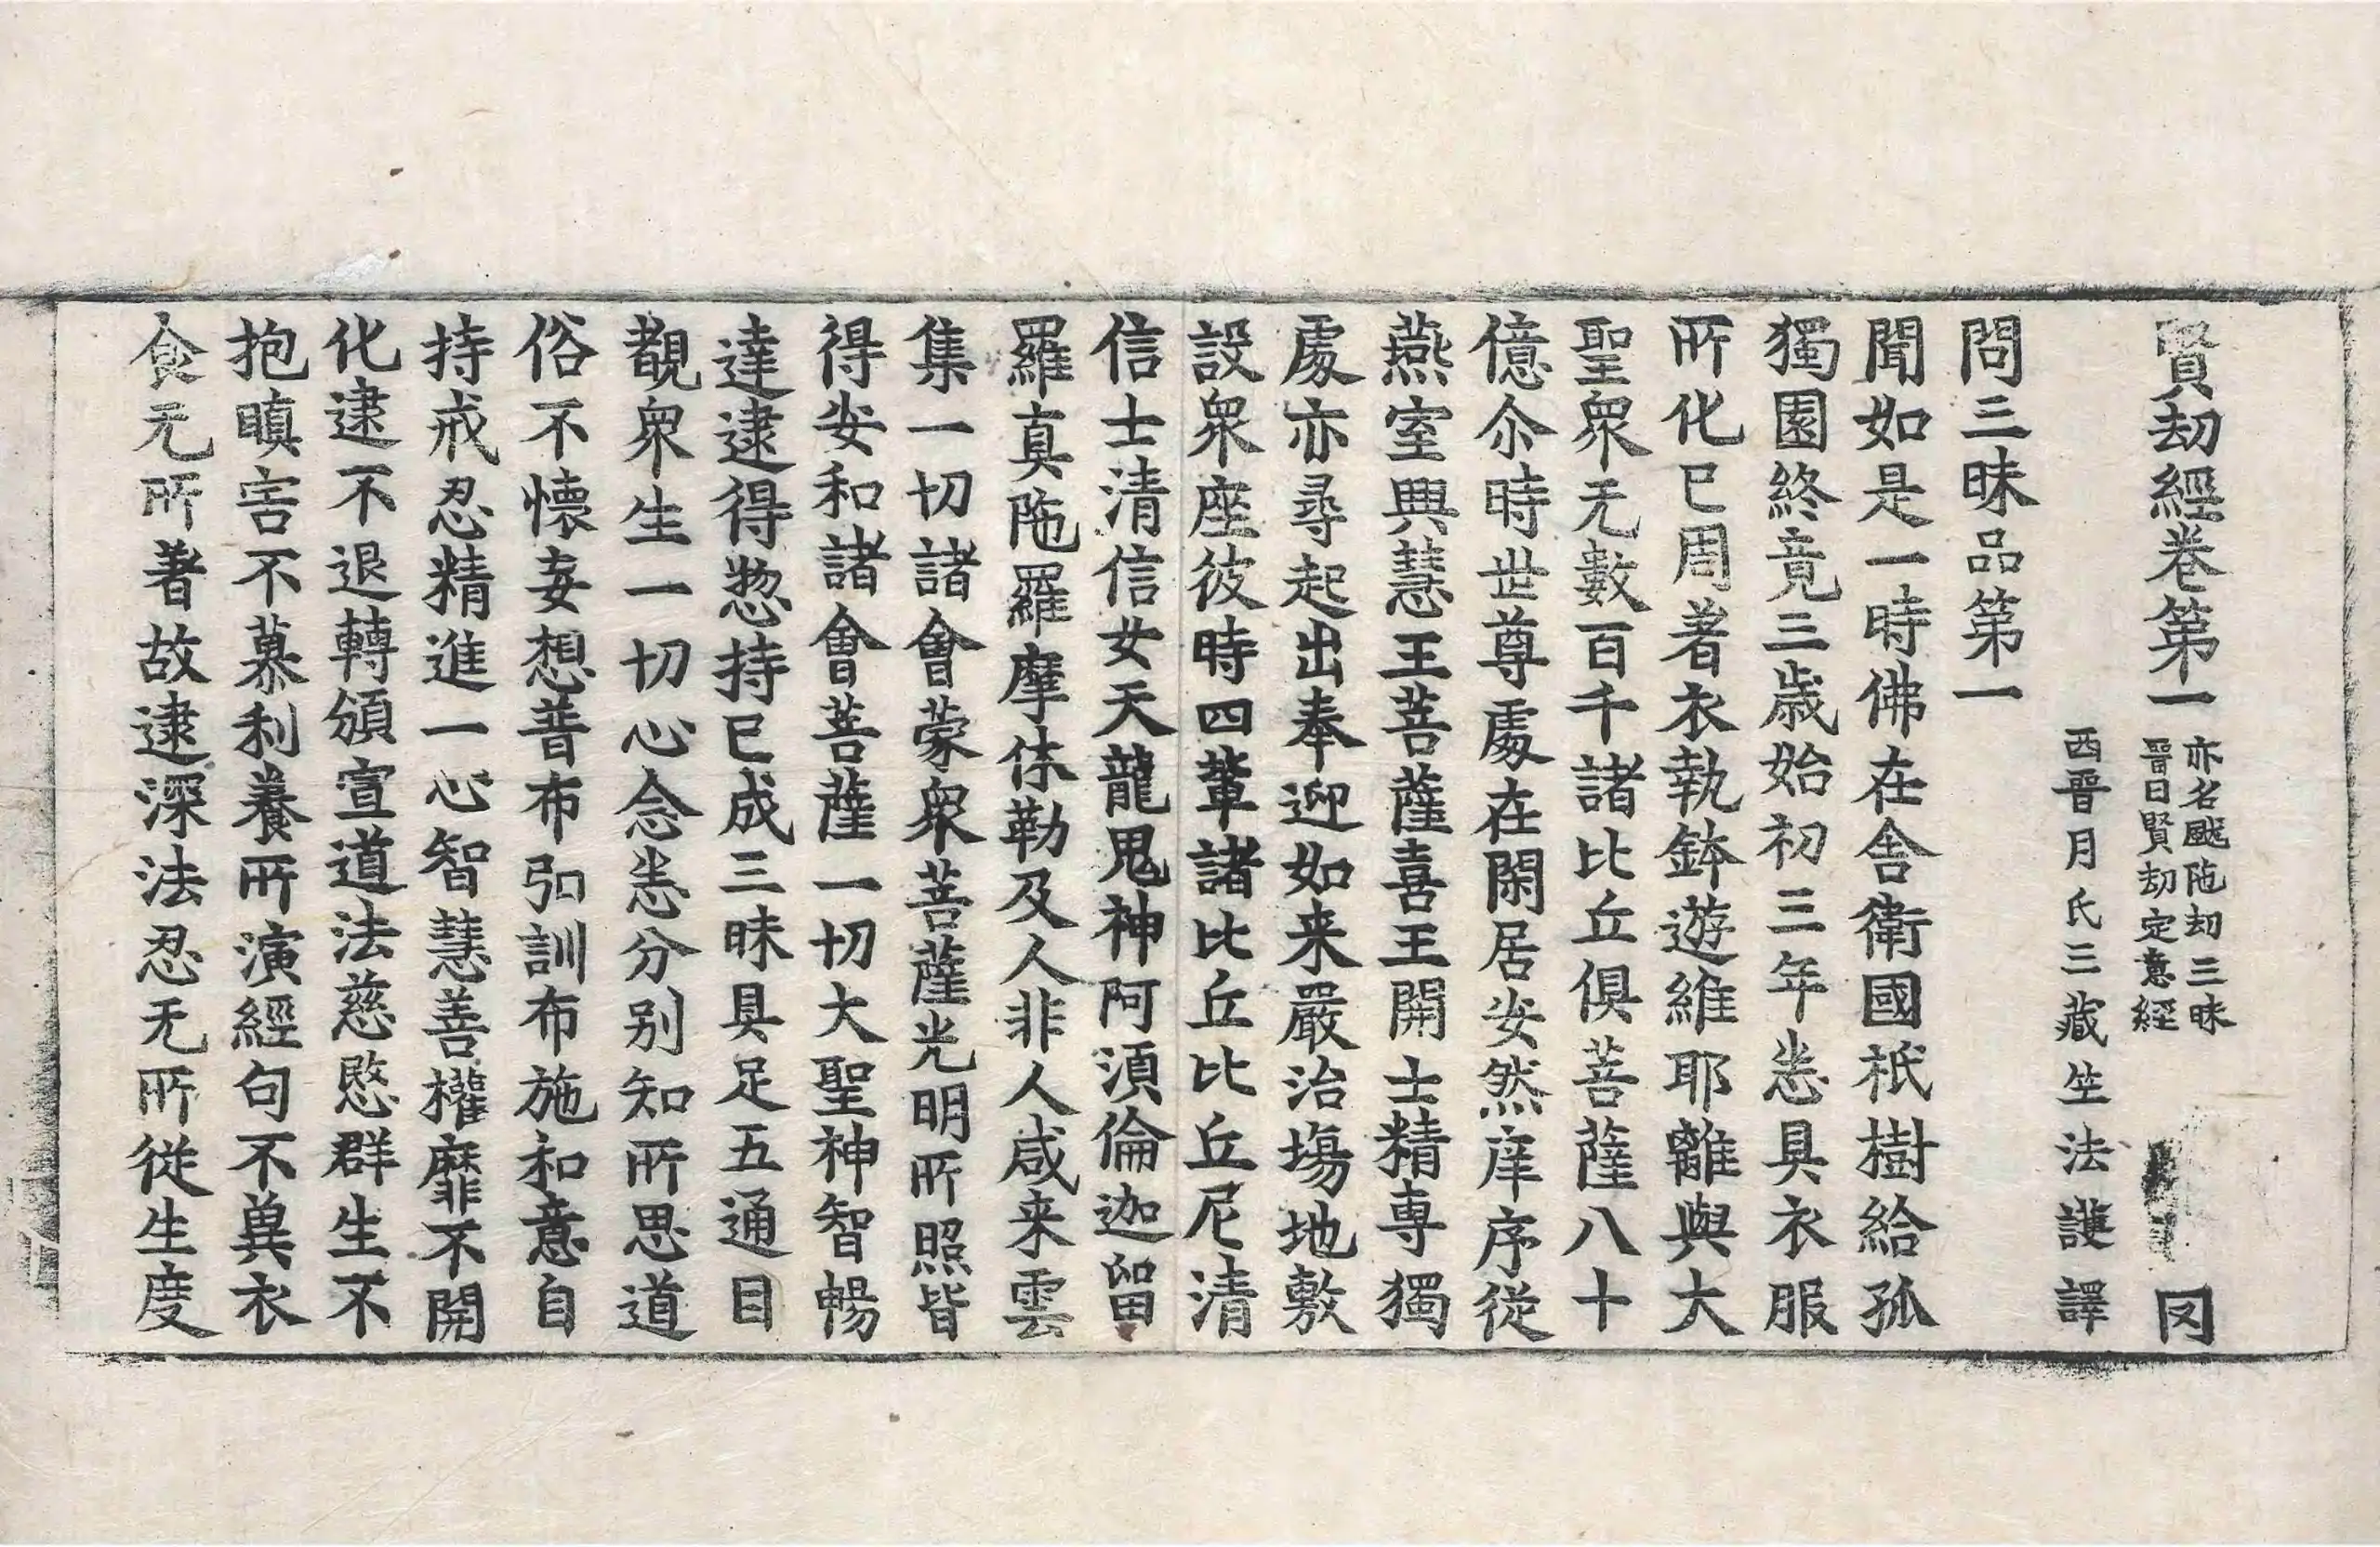 賢劫經卷第一 亦名颰陁劫三昧 晉曰賢劫定意經 罔
西晉月氏三藏竺法護譯
問三昧品第一
聞如是一時佛在舍衛國祇樹給孤
獨園終竟三歲始初三年悉具衣服
所化已周著衣執鉢遊維耶離與大
聖衆无數百千諸比丘俱菩薩八十
億尒時世尊處在閑居安然庠序從
燕室興慧王菩薩喜王開士精專獨
處亦尋起出奉迎如来嚴治場地敷
設衆座彼時四輩諸比丘比丘尼清
信士清信女天龍鬼神阿須倫迦留
羅真陁羅摩休勒及人非人咸来雲
集一切諸會蒙衆菩薩光明所照皆
得安和諸會菩薩一切大聖神智暢
達逮得惣持已成三昧具足五通目
覩衆生一切心念悉分别知所思道
俗不懷妄想普布弘訓布施和意自
持戒忍精進一心智慧善權靡不開
化逮不退轉頒宣道法慈愍群生不
抱瞋害不慕利養所演經句不兾衣
食无所著故逮深法忍无所從生度